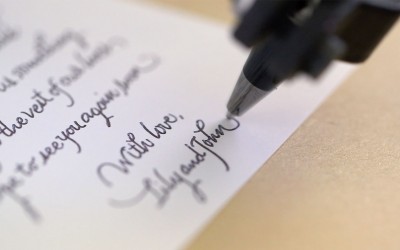 is something
the rest of our lives,
to see you again, soon
With love,
Lily and John